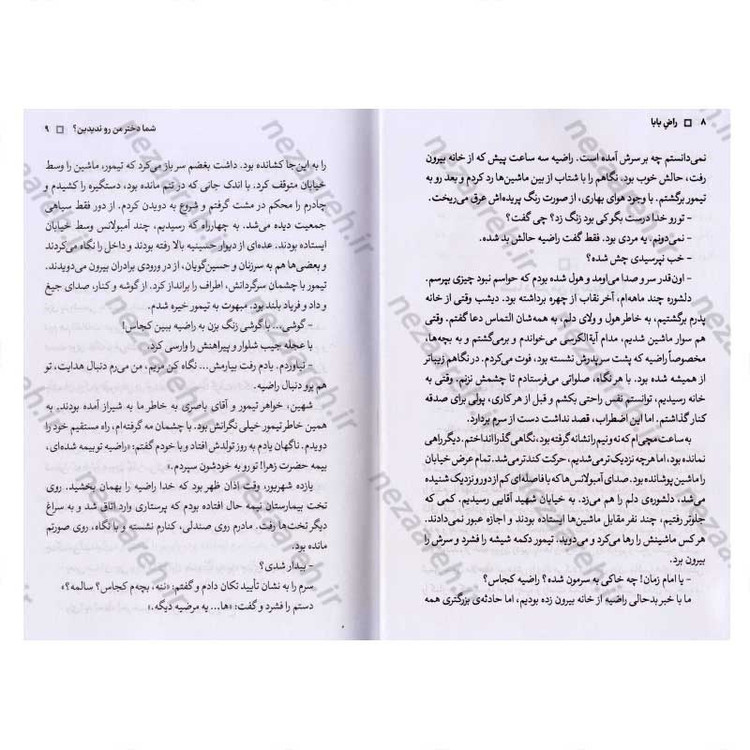 ۸ □ راض بابا
نمی‌دانستم چه بر سرش آمده است. راضیه سه ساعت پیش که از خانه بیرون
رفت، حالش خوب بود. نگاهم را با شتاب از بین ماشین‌ها رد کردم و بعد رو به
تیمور برگشتم. با وجود هوای بهاری، از صورت رنگ پریده‌اش عرق می‌ریخت.
- تو رو خدا درست بگو کی بود زنگ زد؟ چی گفت؟
- نمی‌دونم. یه مردی بود. فقط گفت راضیه حالش بد شده.
- خب نپرسیدی چش شده؟
- اون‌قدر سر و صدا می‌اومد و هول شده بودم که حواسم نبود چیزی بپرسم.
دلشوره چند ماهه‌ام، آخر نقاب از چهره برداشته بود. دیشب وقتی از خانه
پدرم برگشتیم، به خاطر هول و ولای دلم، به همه‌شان التماس دعا گفتم. وقتی
هم سوار ماشین شدیم، مدام آیة‌الکرسی می‌خواندم و برمی‌گشتم و به بچه‌ها،
مخصوصاً راضیه که پشت سر پدرش نشسته بود، فوت می‌کردم. در نگاهم زیباتر
از همیشه شده بود. با هر نگاه، صلواتی می‌فرستادم تا چشمش نزنم. وقتی به
خانه رسیدیم، توانستم نفس راحتی بکشم و قبل از هر کاری، پولی برای صدقه
کنار گذاشتم. اما این اضطراب، قصد نداشت دست از سرم بردارد.
به ساعت مچی‌ام که نه و نیم را نشانه گرفته بود، نگاهی گذرا انداختم. دیگر راهی
نمانده بود، اما هرچه نزدیک‌تر می‌شدیم، حرکت کندتر می‌شد. تمام عرض خیابان
را ماشین پوشانده بود. صدای آمبولانس‌ها که با فاصله‌ای کم از دور و نزدیک شنیده
می‌شد، دلشوره‌ی دلم را هم می‌زد. به خیابان شهید آقایی رسیدیم. کمی که
جلوتر رفتیم، چند نفر مقابل ماشین‌ها ایستاده بودند و اجازه عبور نمی‌دادند.
هر کس ماشینش را رها می‌کرد و می‌دوید. تیمور دکمه شیشه را فشرد و سرش را
بیرون برد.
- یا امام زمان! چه خاکی به سرمون شده؟ راضیه کجاس؟
ما با خبر بدحالی راضیه از خانه بیرون زده بودیم، اما حادثه‌ی بزرگتری همه
شما دختر من رو ندیدین؟ □ ۹
را به این‌جا کشانده بود. داشت بغضم سر باز می‌کرد که تیمور، ماشین را وسط
خیابان متوقف کرد. با اندک جانی که در تنم مانده بود، دستگیره را کشیدم و
چادرم را محکم در مشت گرفتم و شروع به دویدن کردم. از دور فقط سیاهی
جمعیت دیده می‌شد. به چهارراه که رسیدیم، چند آمبولانس وسط خیابان
ایستاده بودند. عده‌ای از دیوار حسینیه بالا رفته بودند و داخل را نگاه می‌کردند
و بعضی‌ها هم به سرزنان و حسین‌گویان، از در ورودی برادران بیرون می‌دویدند.
تیمور با چشمان سرگردانش، اطراف را براندازی کرد. از گوشه و کنار، صدای جیغ
و داد و فریاد بلند بود. مبهوت به تیمور خیره شدم.
- گوشی... با گوشی زنگ بزن به راضیه ببین کجاس!
با عجله جیب شلوار و پیراهنش را وارسی کرد.
- نیاوردم. یادم رفت بیارمش... نگاه کن مریم، من می‌رم دنبال هدایت، تو
هم برو دنبال راضیه.
شهین، خواهر تیمور و آقای باصری به خاطر ما به شیراز آمده بودند. به
همین خاطر تیمور خیلی نگرانش بود. با چشمان مه گرفته‌ام، راه مستقیم خود را
دویدم. ناگهان یادم به روز تولدش افتاد و با خودم گفتم: «راضیه تو بیمه شده‌ای،
بیمه حضرت زهرا! تو رو به خودشون سپردم.»
یازده شهریور، وقت اذان ظهر بود که خدا راضیه را بهمان بخشید. روی
تخت بیمارستان نیمه حال افتاده بودم که پرستاری وارد اتاق شد و به سراغ
دیگر تخت‌ها رفت. مادرم روی صندلی، کنارم نشسته و با نگاه، روی صورتم
مانده بود.
- بیدار شدی؟
سرم را به نشان تأیید تکان دادم و گفتم: «ننه، بچه‌م کجاس؟ سالمه؟»
دستم را فشرد و گفت: «ها... یه مرضیه دیگه.»
nezaareh.ir